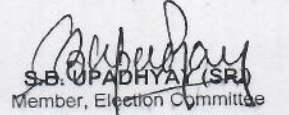 S.B. UPADHYAY (SR.)
Member, Election Committee